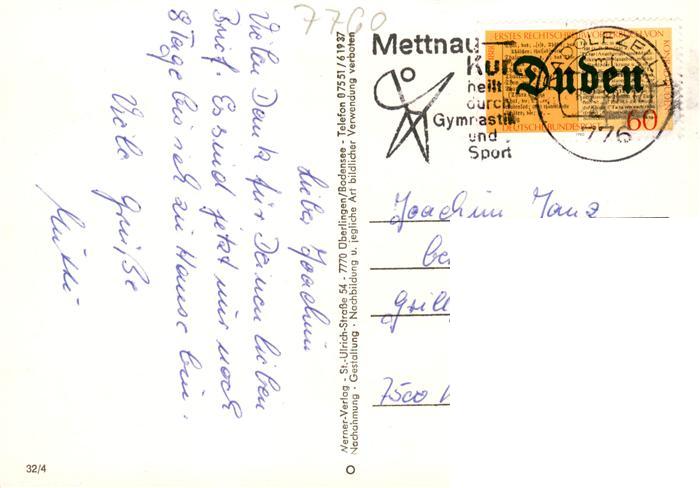 7760
Lieber Joachim
Vielen Dank für Deinen lieben
Brief. Es sind jetzt nur noch
8 Tage bis ich zu Hause bin.
Viele Grüße
Mutti
Werner-Verlag - St.-Ulrich-Straße 54 - 7770 Überlingen/Bodensee - Telefon 07551/61937
Nachahmung · Gestaltung · Nachbildung u. jegliche Art bildlicher Verwendung verboten
Mettnau-
Kur
heilt
durch
Gymnastik
und
Sport
ERSTES RECHTSCHREIB WÖRTERBUCH VON KONRAD
Duden
DEUTSCHE BUNDES
60
776
Joachim Manz
be
Grill
7500
32/4